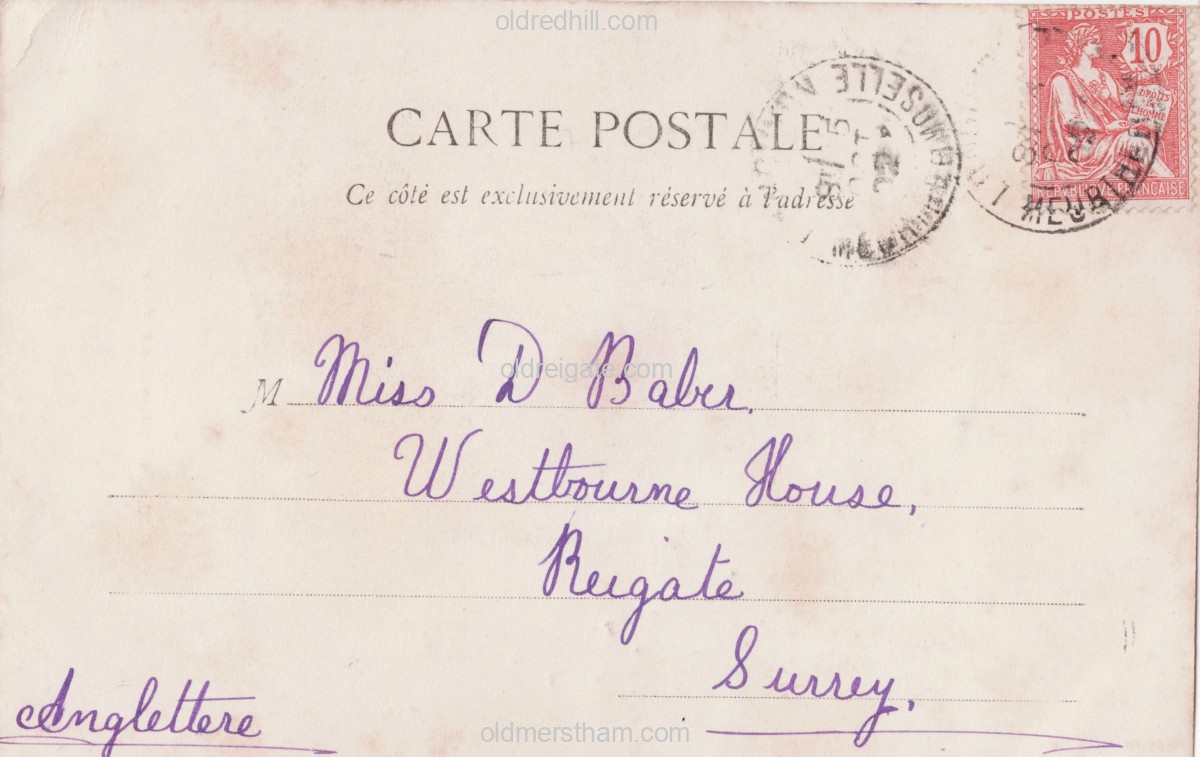 oldredhill.com
POSTES
10
DROITS
DE
L'HOMME
RÉPUBLIQUE FRANÇAISE
CARTE POSTALE
Ce côté est exclusivement réservé à l'adresse
MOSELLE
OCT
oldreigate.com
M Miss D Baber.
Westbourne House,
Reigate
Surrey,
Anglettere
oldmerstham.com